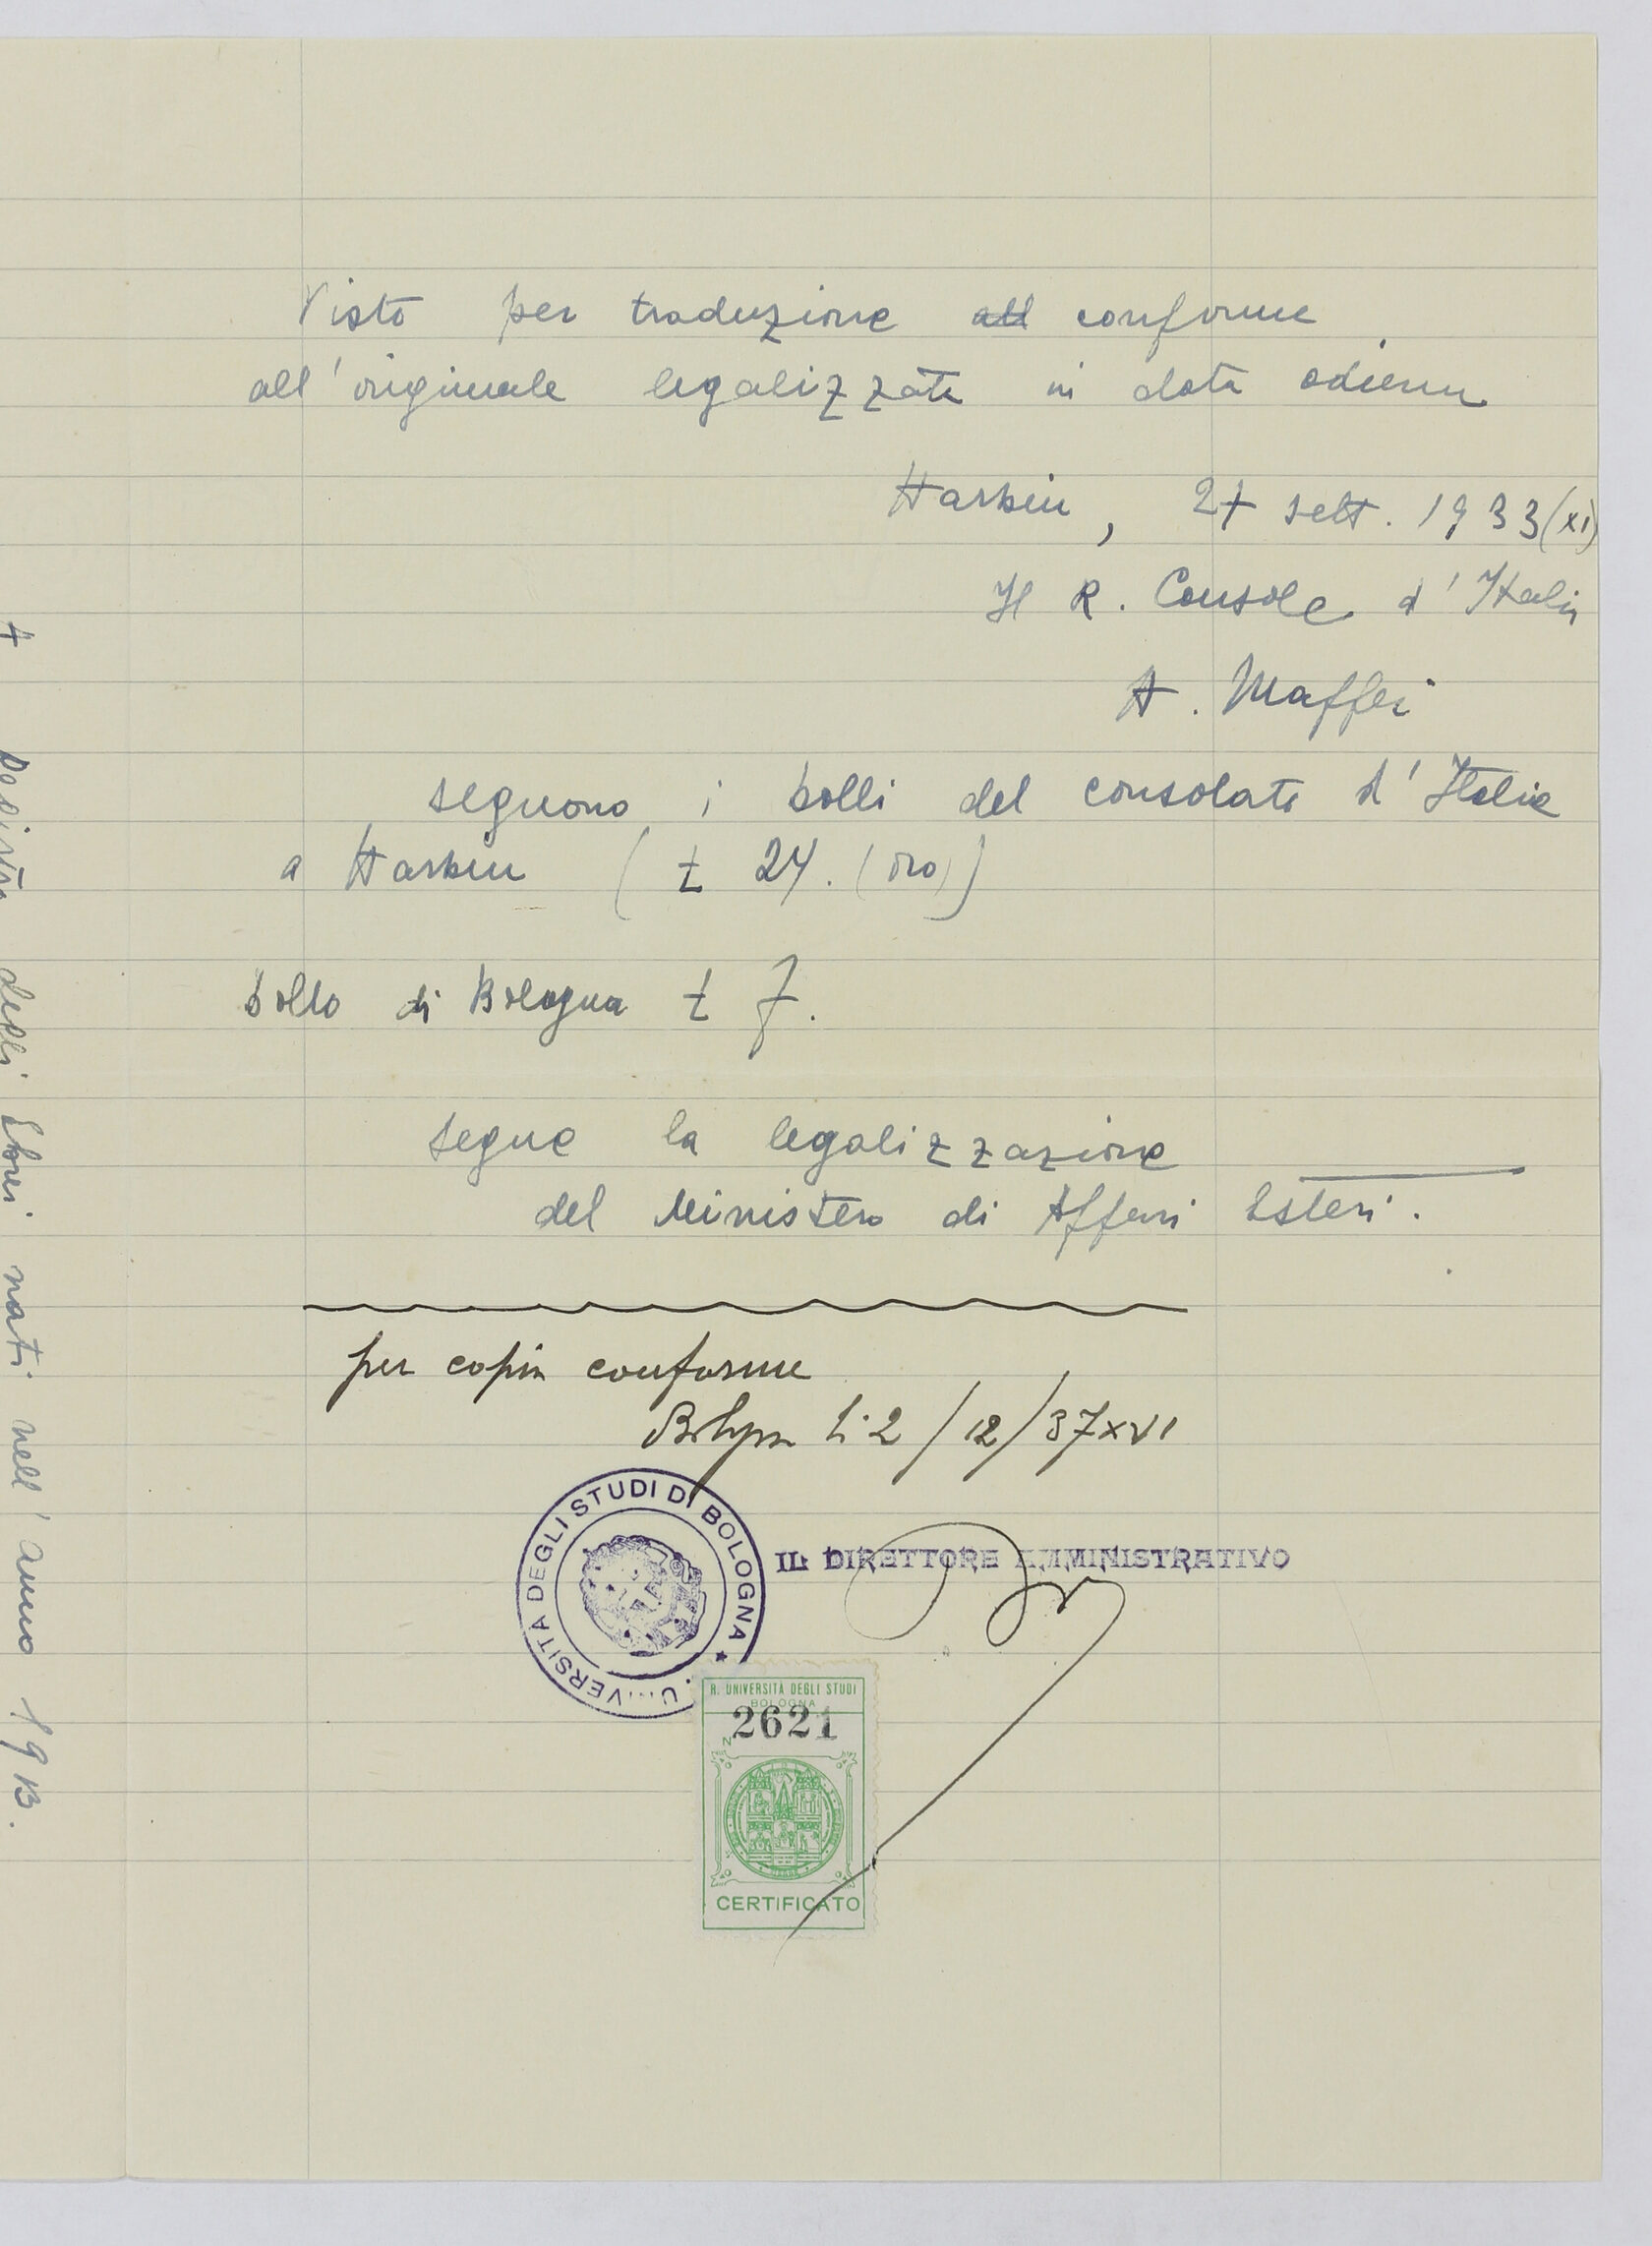 Visto per traduzione all conforme
all'originale legalizzata in data odierna
Harbin, 27 sett. 1933 (XI)
Il R. Console d'Italia
A. Maffei
seguono i bolli del consolato d'Italia
a Harbin (£ 24. (oro))
bollo di Bologna £ 7.
segue la legalizzazione
del Ministero di Affari Esteri.
per copia conforme
Bologna li 2/12/37 XVI
UNIVERSITA DEGLI STUDI DI BOLOGNA
IL DIRETTORE AMMINISTRATIVO
R. UNIVERSITÀ DEGLI STUDI
BOLOGNA
N 2621
CERTIFICATO
degli Ebrei nati nell'anno 1913.